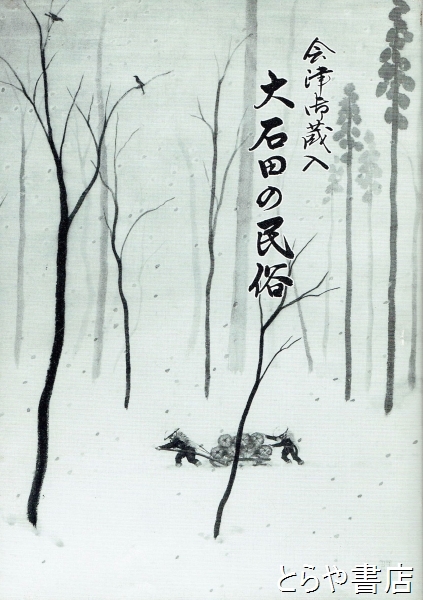 会津御蔵入
大石田の民俗
とらや書店